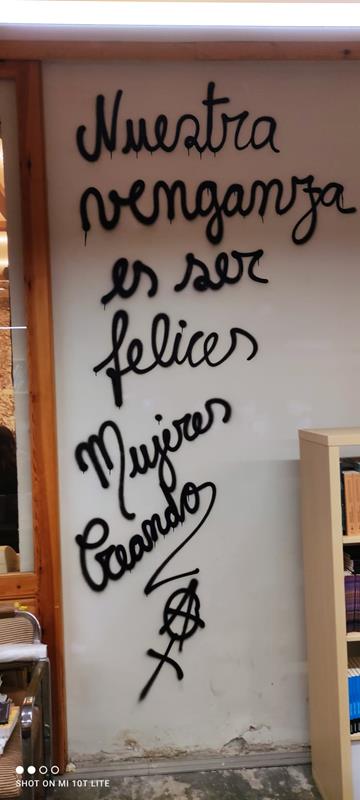 Nuestra
venganza
es ser
felices
Mujeres
Creando
SHOT ON MI 10T LITE